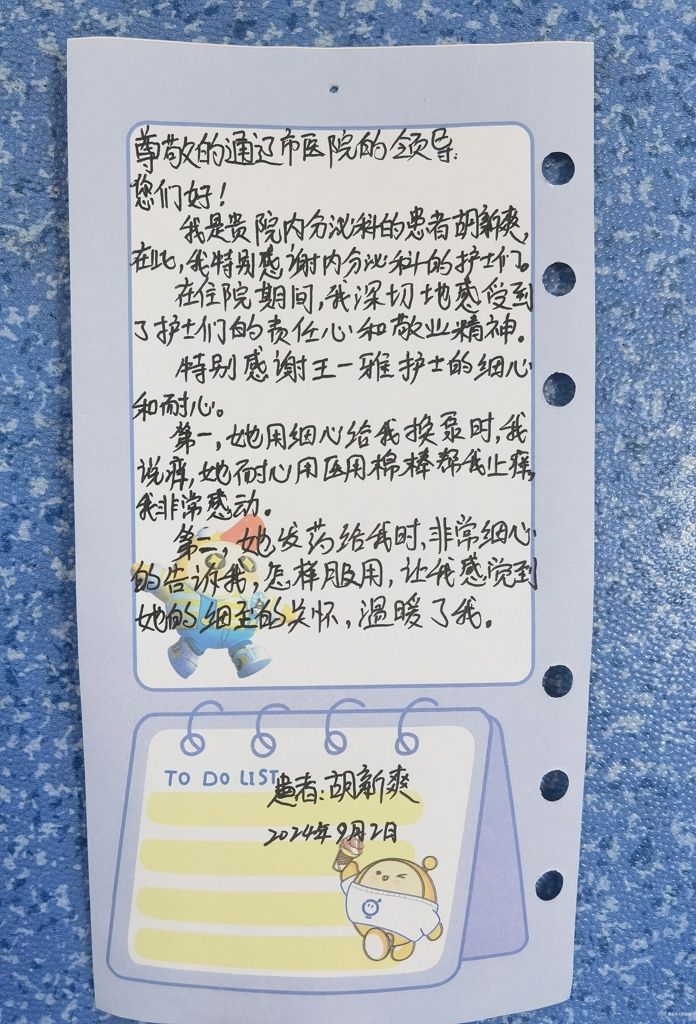 尊敬的通辽市医院的领导:
您们好!
我是贵院内分泌科的患者胡新爽,
在此,我特别感谢内分泌科的护士们。
在住院期间,我深切地感受到
了护士们的责任心和敬业精神。
特别感谢王一雅护士的细心
和耐心。
第一,她用细心给我换泵时,我
说痒,她耐心用医用棉棒帮我止痒,
我非常感动。
第二,她发药给我时,非常细心
的告诉我,怎样服用,让我感觉到
她的细致的关怀,温暖了我。
TO DO LIST
患者:胡新爽
2024年9月2日